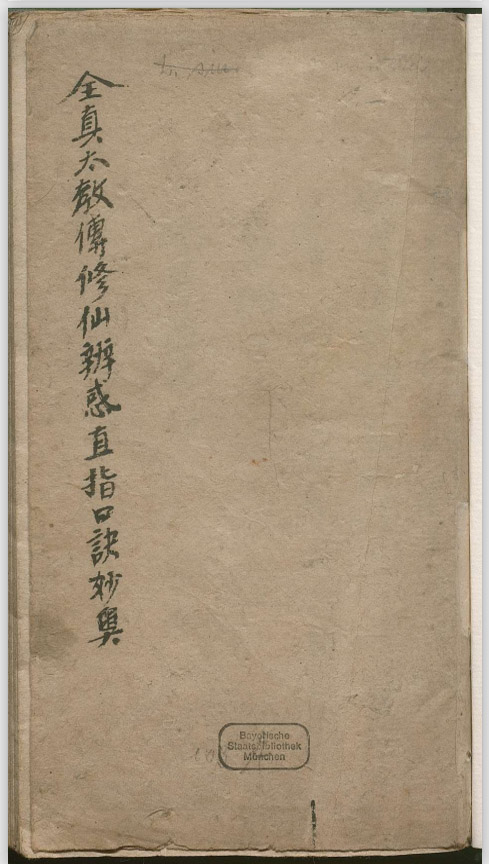 全真太教傳修仙辨惑直指口訣妙奧
Bayerische
Staatsbibliothek
München